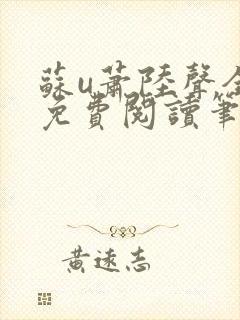 蘇u蕭陸聲全
免費閱讀筆
黃遠志